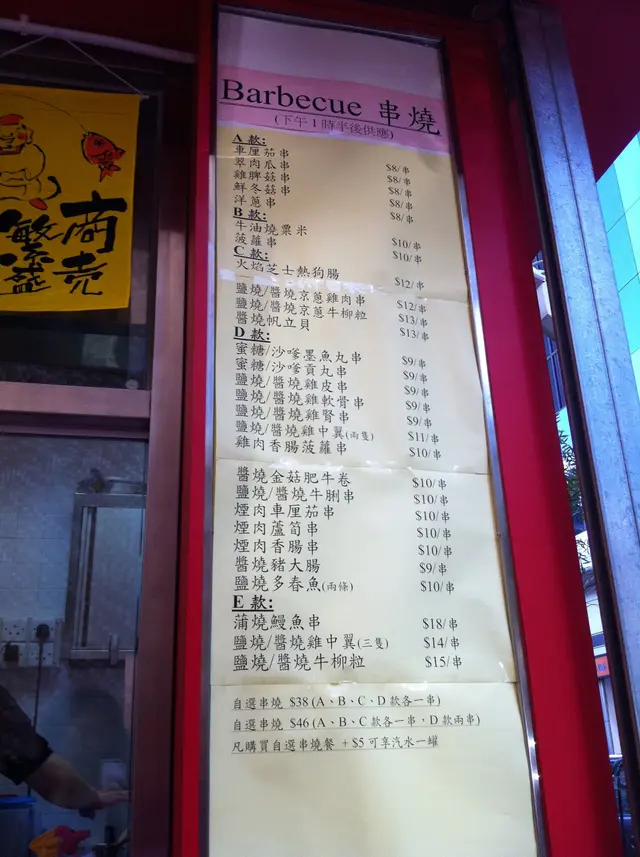 Barbecue 串燒
(下午1時半後供應)
A 款:
車厘茄串 $8/串
翠肉瓜串 $8/串
雞脾菇串 $8/串
鮮冬菇串 $8/串
洋蔥串 $8/串
B 款:
牛油燒粟米 $10/串
菠蘿串 $10/串
C 款:
火焰芝士熱狗腸 $12/串
鹽燒/醬燒京蔥雞肉串 $12/串
鹽燒/醬燒京蔥牛柳粒 $13/串
醬燒帆立貝 $13/串
D 款:
蜜糖/沙嗲墨魚丸串 $9/串
蜜糖/沙嗲貢丸串 $9/串
鹽燒/醬燒雞皮串 $9/串
鹽燒/醬燒雞軟骨串 $9/串
鹽燒/醬燒雞腎串 $9/串
鹽燒/醬燒雞中翼(兩隻) $11/串
雞肉香腸菠蘿串 $10/串
醬燒金菇肥牛卷 $10/串
鹽燒/醬燒牛脷串 $10/串
煙肉車厘茄串 $10/串
煙肉蘆筍串 $10/串
煙肉香腸串 $10/串
醬燒豬大腸 $9/串
鹽燒多春魚(兩條) $10/串
E 款:
蒲燒鰻魚串 $18/串
鹽燒/醬燒雞中翼(三隻) $14/串
鹽燒/醬燒牛柳粒 $15/串
自選串燒 $38 (A、B、C、D 款各一串)
自選串燒 $46 (A、B、C 款各一串，D 款兩串)
凡購買自選串燒餐 + $5 可享汽水一罐
商売
繁盛